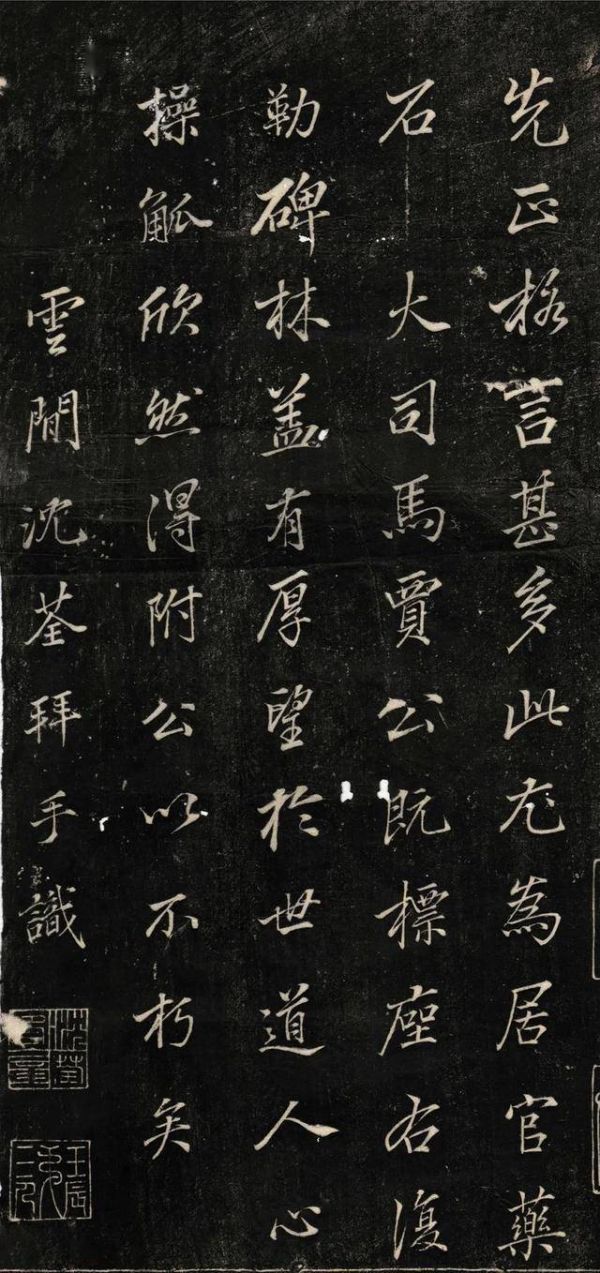 先正格言甚多此尤為居官藥
石 大司馬賈公既標座右復
勒碑林盖有厚望於世道人心
操觚欣然得附公以不朽矣
雲間沈荃拜手識